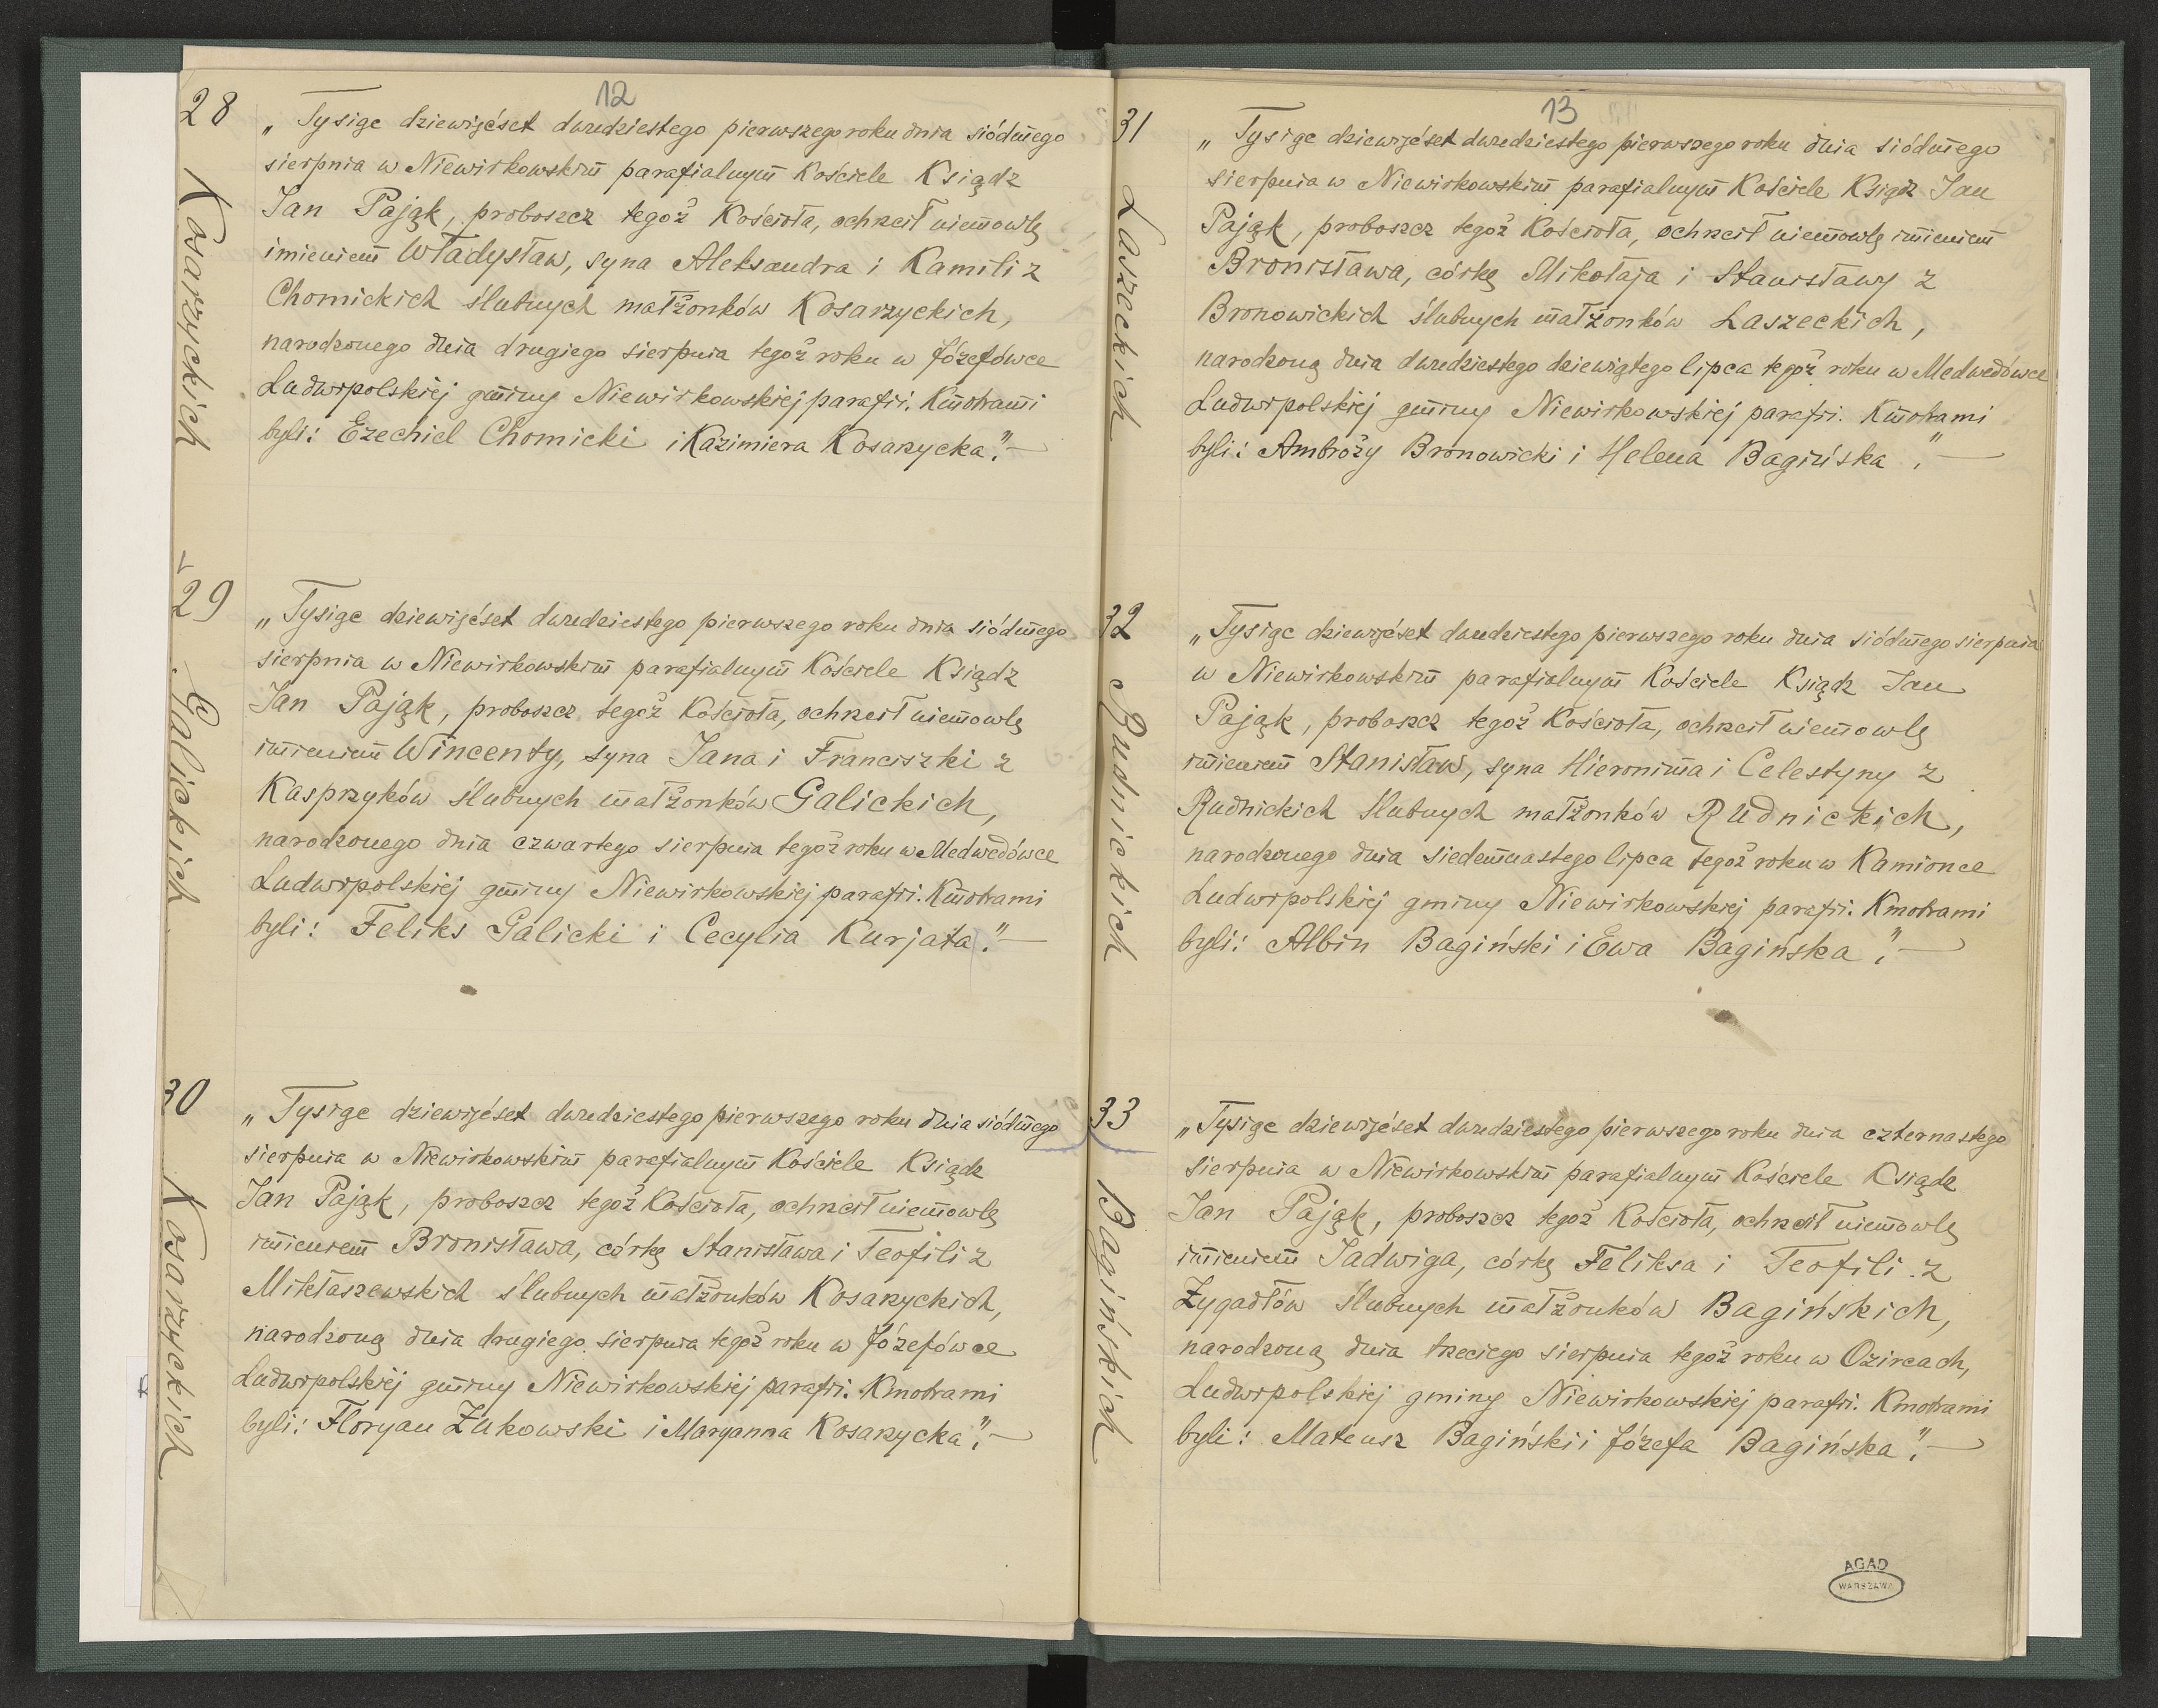 12
28
Kosarzyckich
„Tysiąc dziewięćset dwudziestego pierwszego roku dnia siódmego
sierpnia w Niewirkowskim parafialnym Kościele Ksiądz
Jan Pająk, proboszcz tegoż Kościoła, ochrzcił niemowlę
imieniem Władysław, syna Aleksandra i Kamili z
Chomickich ślubnych małżonków Kosarzyckich,
narodzonego dnia drugiego sierpnia tegoż roku w Józefówce
Ludwipolskiej gminy Niewirkowskiej parafii. Kmotrami
byli: Ezechiel Chomicki i Kazimiera Kosarzycka”.—
29
Galickich
„Tysiąc dziewięćset dwudziestego pierwszego roku dnia siódmego
sierpnia w Niewirkowskim parafialnym Kościele Ksiądz
Jan Pająk, proboszcz tegoż Kościoła, ochrzcił niemowlę
imieniem Wincenty, syna Jana i Franciszki z
Kasprzyków ślubnych małżonków Galickich,
narodzonego dnia czwartego sierpnia tegoż roku w Medwedówce
Ludwipolskiej gminy Niewirkowskiej parafii. Kmotrami
byli: Feliks Galicki i Cecylia Kurjata”.—
30
Kosarzyckich
„Tysiąc dziewięćset dwudziestego pierwszego roku dnia siódmego
sierpnia w Niewirkowskim parafialnym Kościele Ksiądz
Jan Pająk, proboszcz tegoż Kościoła, ochrzcił niemowlę
imieniem Bronisława, córkę Stanisława i Teofili z
Mikłaszewskich ślubnych małżonków Kosarzyckich,
narodzoną dnia drugiego sierpnia tegoż roku w Józefówce
Ludwipolskiej gminy Niewirkowskiej parafii. Kmotrami
byli: Floryan Żukowski i Maryanna Kosarzycka”.—
13
31
Łaszeckich
„Tysiąc dziewięćset dwudziestego pierwszego roku dnia siódmego
sierpnia w Niewirkowskim parafialnym Kościele Ksiądz Jan
Pająk, proboszcz tegoż Kościoła, ochrzcił niemowlę imieniem
Bronisława, córkę Mikołaja i Stanisławy z
Bronowickich ślubnych małżonków Łaszeckich,
narodzoną dnia dwudziestego dziewiątego lipca tegoż roku w Medwedówce
Ludwipolskiej gminy Niewirkowskiej parafii. Kmotrami
byli: Ambroży Bronowicki i Helena Bagińska”.—
32
Rudnickich
„Tysiąc dziewięćset dwudziestego pierwszego roku dnia siódmego sierpnia
w Niewirkowskim parafialnym Kościele Ksiądz Jan
Pająk, proboszcz tegoż Kościoła, ochrzcił niemowlę
imieniem Stanisław, syna Hieronima i Celestyny z
Rudnickich ślubnych małżonków Rudnickich,
narodzonego dnia siedemnastego lipca tegoż roku w Kamionce
Ludwipolskiej gminy Niewirkowskiej parafii. Kmotrami
byli: Albin Bagiński i Ewa Bagińska”.—
33
Bagińskich
„Tysiąc dziewięćset dwudziestego pierwszego roku dnia czternastego
sierpnia w Niewirkowskim parafialnym Kościele Ksiądz
Jan Pająk, proboszcz tegoż Kościoła, ochrzcił niemowlę
imieniem Jadwiga, córkę Feliksa i Teofili z
Zygadłów ślubnych małżonków Bagińskich,
narodzoną dnia trzeciego sierpnia tegoż roku w Ozircach,
Ludwipolskiej gminy Niewirkowskiej parafii. Kmotrami
byli: Mateusz Bagiński i Józefa Bagińska”.—
AGAD
WARSZAWA